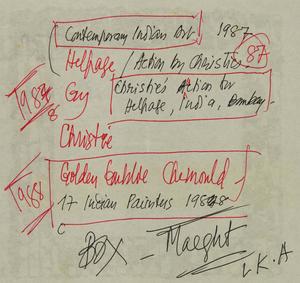 Contemporary Indian Art 1987
Helpage / Action by Christies 87
1988 by Christie's Action for
Helpage, India, Bombay -
Christie
1988 Golden Chemould -
17 Indian Painters 1988
BOX - Maeght
L.K.A